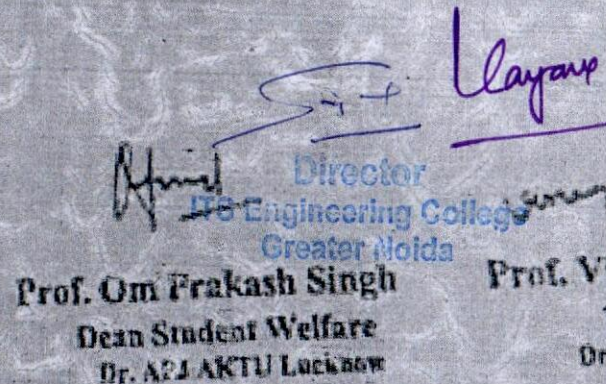 Director
ITS Engineering College
Greater Noida
Prof. Om Prakash Singh
Prof. V
Dean Student Welfare
Dr. APJ AKTU Lucknow
Dr